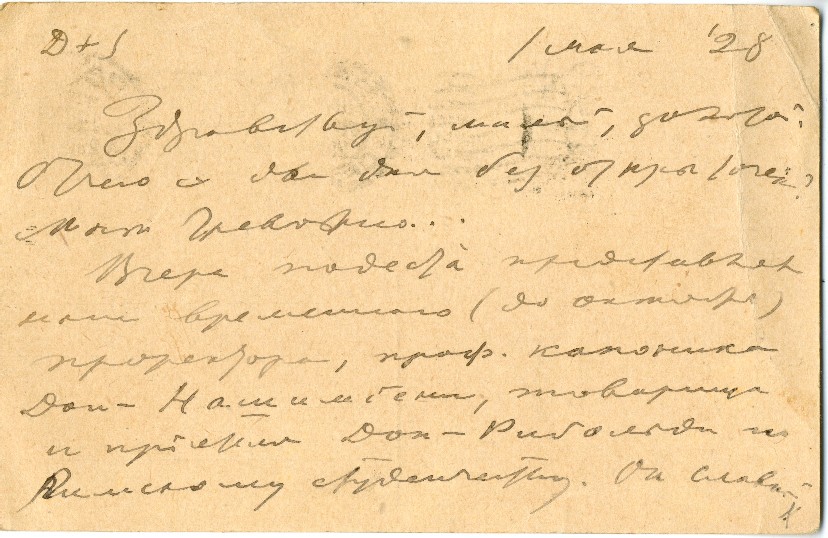 D+S
1 мая '28
Здравствуй, милый, дорогой.
Отчего я два дня без открыточек?
Мне тревожно...
Вчера подеста представлял
нам временного (до октября)
проректора, проф. каноника
Дон-Нашимбени, товарища
и приятеля Дон-Рибольди по
Римскому студенчеству. Он славный